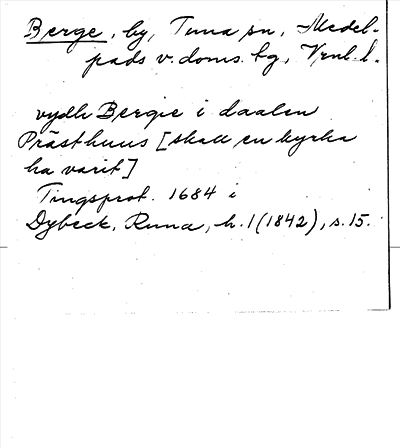 Berge, by, Tuna sn, Medel-
pads v. doms. hg, Vrnl. l.
vydh Bergie i daalen
Prästhuus [skall en kyrka
ha varit]
Tingsprot. 1684 i
Dybeck, Runa, h. 1 (1842), s. 15.